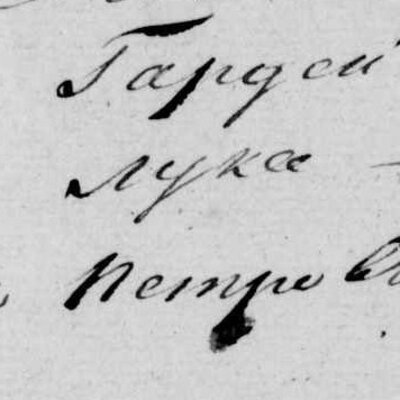 Гардей
Лука
Петров